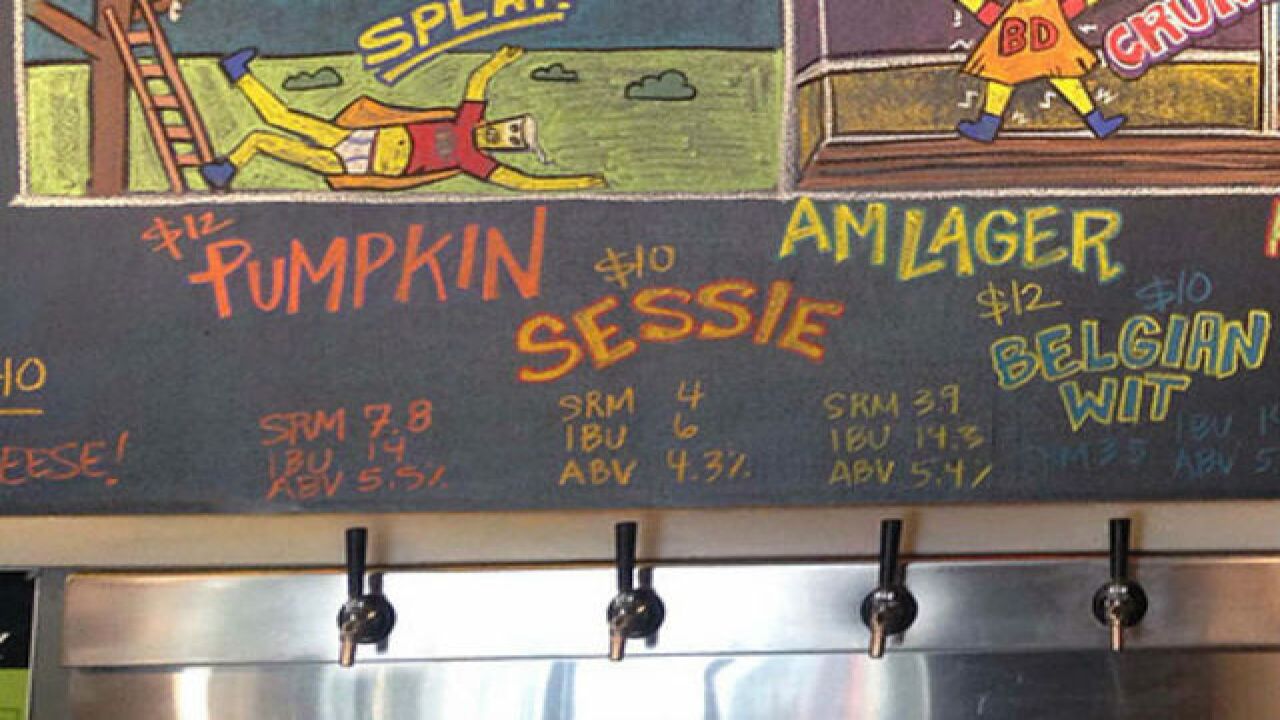 SPLAT!
BD
$12
PUMPKIN
SRM 7.8
IBU 14
ABV 5.5%
$10
SESSIE
SRM 4
IBU 6
ABV 4.3%
AM LAGER
$12
SRM 3.9
IBU 14.3
ABV 5.4%
$10
BELGIAN
WIT
IBU
ABV